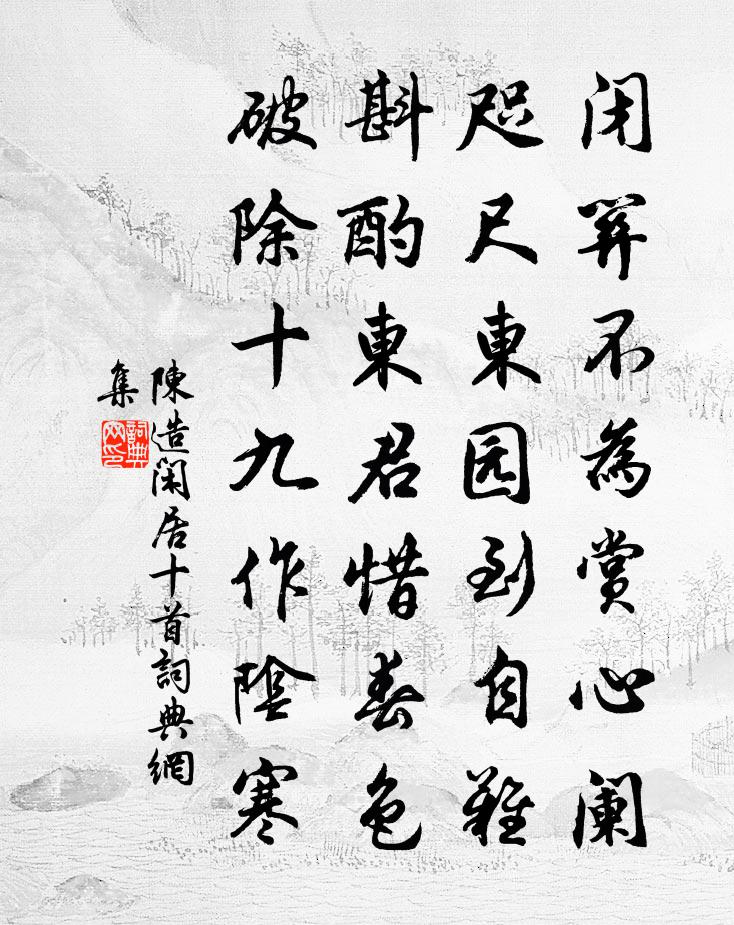 闭箅不為赏心阑
咫尺東园到自难
斟酌東君惜春色
破除十九作陰寒
陳造閑居十首詞典網
集
詞典
网